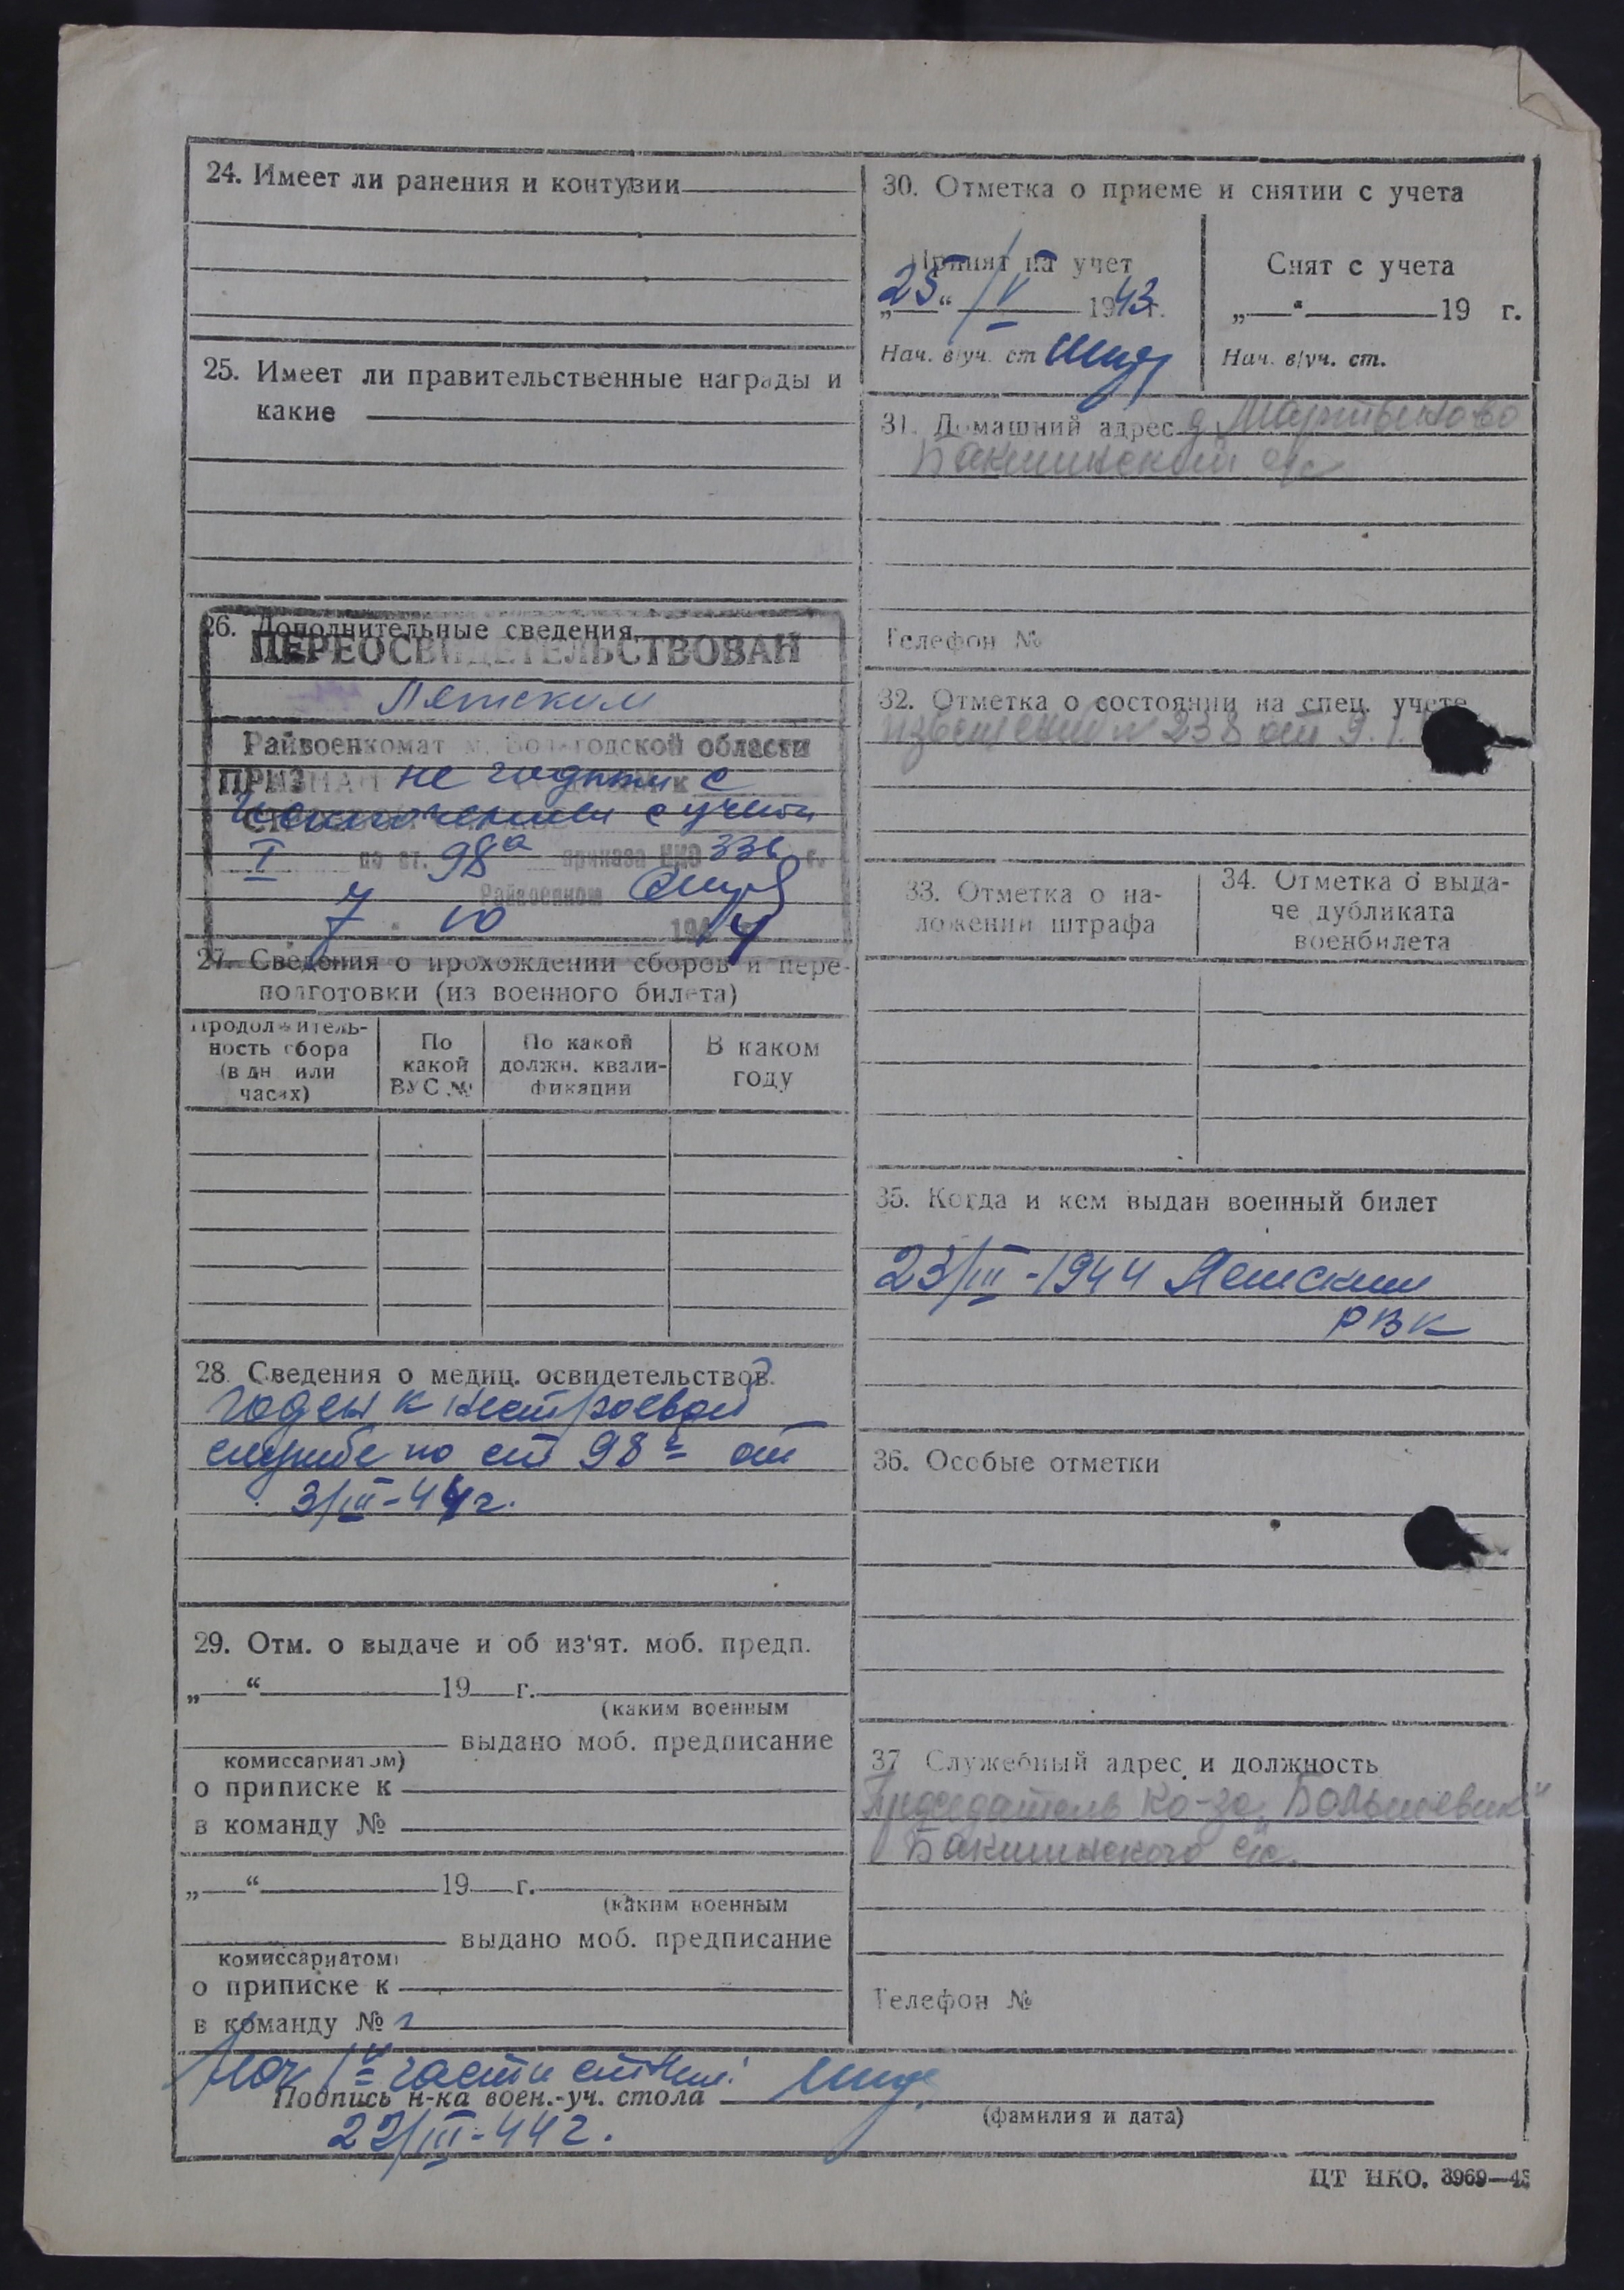 24. Имеет ли ранения и контузии
25. Имеет ли правительственные награды и
какие
26. Дополнительные сведения
ПЕРЕОСВИДЕТЕЛЬСТВОВАН
Райвоенкомат м. Вологодской области
ПРИЗНАН не годным с
исключением с учета
I по ст. 98а приказа НКО 336 г.
Райвоенком
7 " 10 1944
27. Сведения о прохождении сборов и пере-
подготовки (из военного билета)
Продолжитель-
ность сбора
(в дн или
часах)
По
какой
ВУС №
По какой
должн. квали-
фикации
В каком
году
28. Сведения о медиц. освидетельствов.
годен к нестроевой
службе по ст 98 от
3/III-44г.
29. Отм. о выдаче и об из'ят. моб. предп.
„ “ 19 г.
(каким военным
выдано моб. предписание
комиссариатом)
о приписке к
в команду №
„ “ 19 г.
(каким военным
выдано моб. предписание
комиссариатом)
о приписке к
в команду №
30. Отметка о приеме и снятии с учета
Принят на учет
25 “ IV 1943г.
Нач. в/уч. ст
Снят с учета
„ “ 19 г.
Нач. в/уч. ст.
31. Домашний адрес д. Мартыново
Бакшинский с/с
Телефон №
32. Отметка о состоянии на спец. учете
извещение № 238 от 9.
33. Отметка о на-
ложении штрафа
34. Отметка о выда-
че дубликата
военбилета
35. Когда и кем выдан военный билет
23/III-1944
РВК
36. Особые отметки
37 Служебный адрес и должность
Председатель к-за „Большевик“
Бакшинского с/с.
Телефон №
Нач 1й части
Подпись н-ка воен.-уч. стола
(фамилия и дата)
22/III-44г.
ЦТ НКО. 3969—43